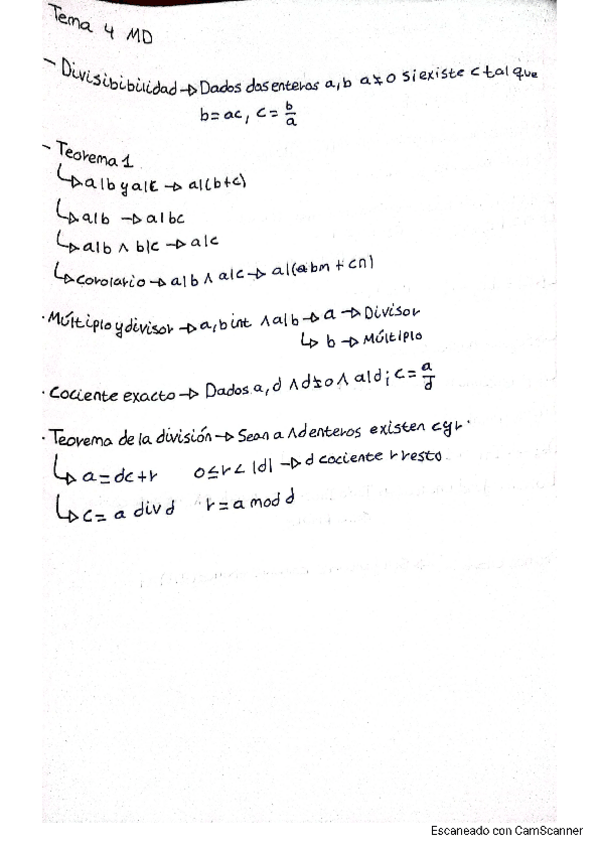 Tema 4 MD
- Divisibibilidad → Dados dos enteros a, b a≠0 si existe c tal que
b = ac, c = b/a
- Teorema 1
↳ a|b y a|c → a|(b+c)
↳ a|b → a|bc
↳ a|b ∧ b|c → a|c
↳ corolario → a|b ∧ a|c → a|(abm + cn)
· Múltiplo y divisor → a, b int ∧ a|b → a → Divisor
↳ b → Múltiplo
· Cociente exacto → Dados a, d ∧ d≠0 ∧ a|d; c = a/d
· Teorema de la división → Sean a ∧ d enteros existen c y r.
↳ a = dc + r 0 ≤ r < |d| → d cociente r resto
↳ c = a div d r = a mod d
Escaneado con CamScanner